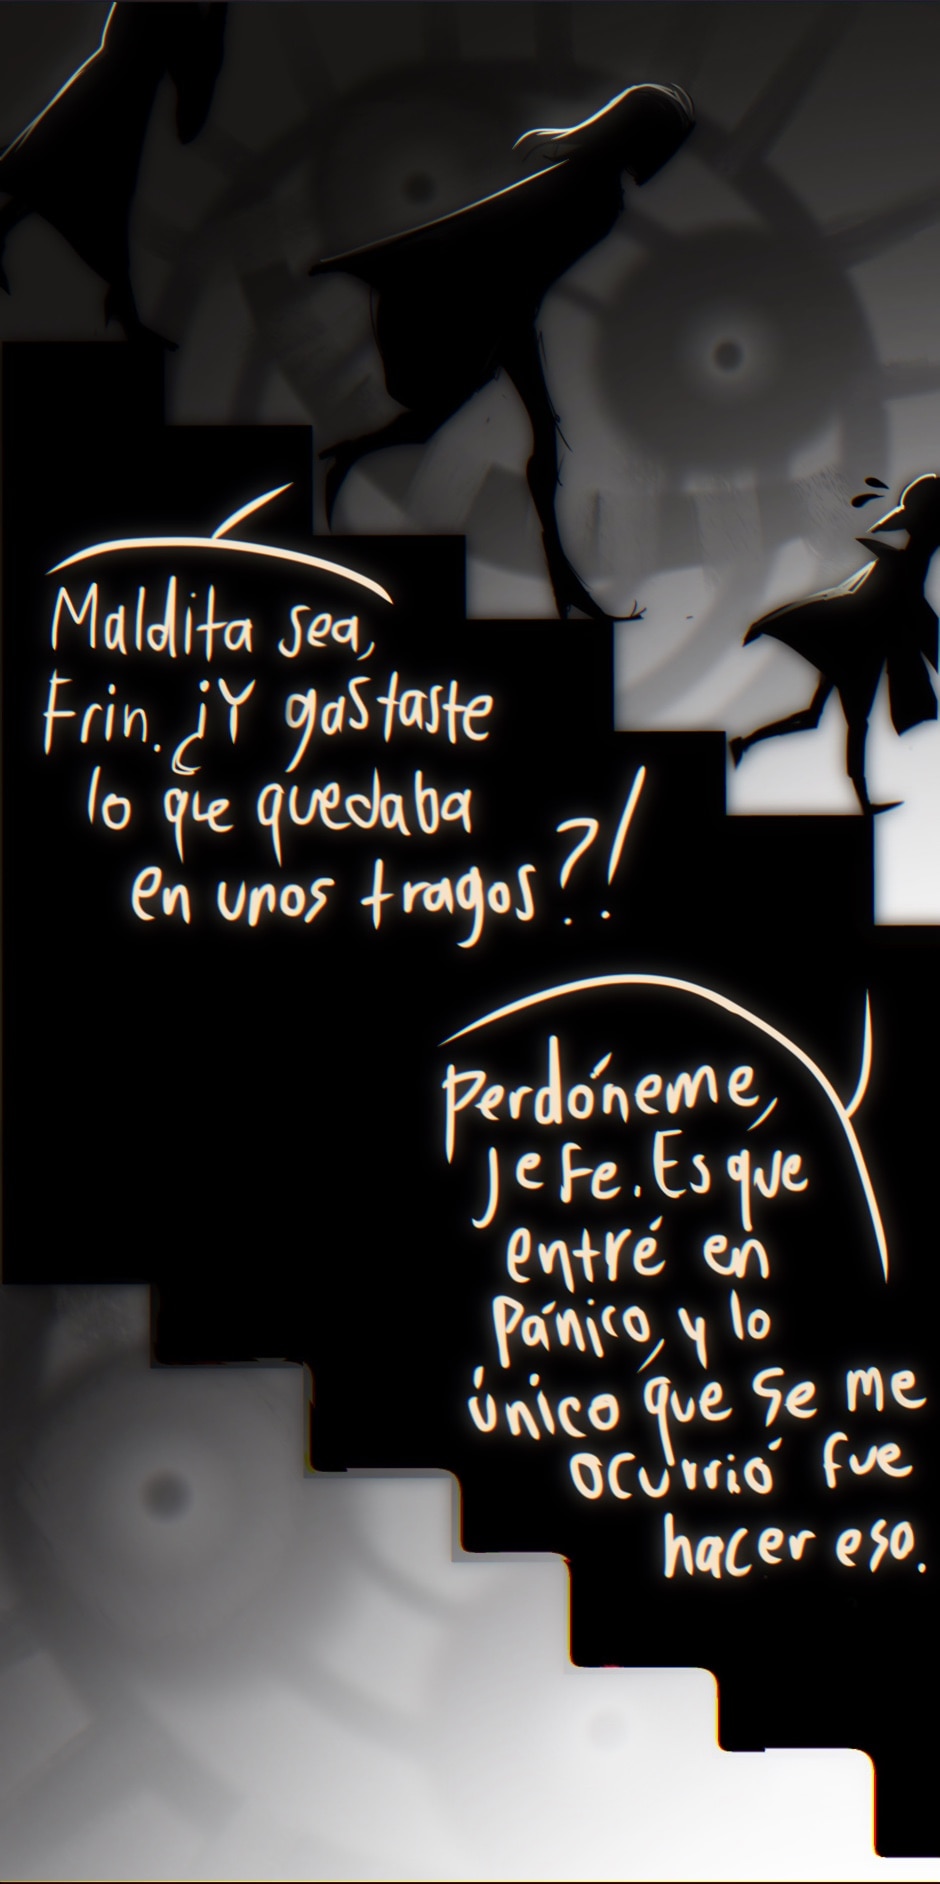 Maldita sea,
Frin. ¿¡Y gastaste
lo que quedaba
en unos tragos?!
Perdóneme,
jefe. Es que
entré en
pánico, y lo
único que se me
ocurrió fue
hacer eso.